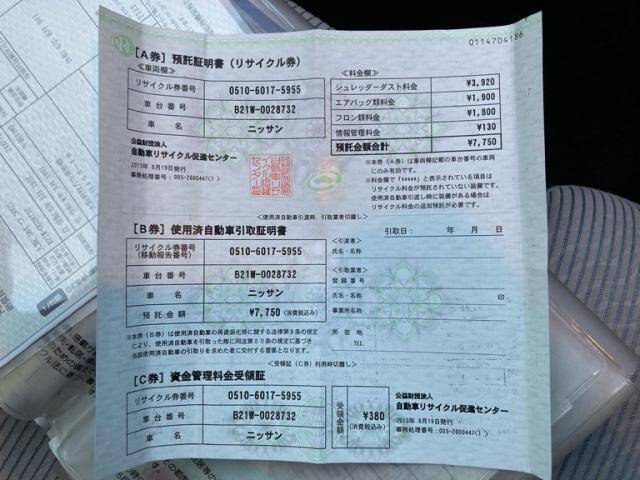 0114704186
[A券] 預託証明書 (リサイクル券)
<車両欄>
リサイクル券番号 0510-6017-5955
車台番号 B21W-0028732
車名 ニッサン
公益財団法人
自動車リサイクル促進センター
2013年 8月19日発行
事務処理番号：005-2600447(1)
<料金欄>
シュレッダーダスト料金 ¥3,920
エアバッグ類料金 ¥1,900
フロン類料金 ¥1,800
情報管理料金 ¥130
預託金額合計 ¥7,750
※本券（A券）は車両欄記載の車台番号の車両
にのみ有効です。
※料金欄で「*****」と表示されている項目は
リサイクル料金が預託されていない装備です。
使用済自動車引渡し時に装備がある場合は
リサイクル料金の追加預託が必要です。
<使用済自動車引渡時、引取業者切離し>
[B券] 使用済自動車引取証明書
引取日： 年 月 日
リサイクル券番号
(移動報告番号) 0510-6017-5955
車台番号 B21W-0028732
車名 ニッサン
預託金額 ¥7,750 (消費税込み)
※本券（B券）は使用済自動車の再資源化等に関する法律第9条の規定
により、使用済自動車を引取った際に同法第80条の規定に基づき
当該使用済自動車の引取りを求めた者に交付する書面となります。
<引渡者>
氏名・名称
<引取業者>
登録番号
氏名・名称 印
事業所名
所在地
TEL
<受領証（C券）利用時切離し>
[C券] 資金管理料金受領証
リサイクル券番号 0510-6017-5955
車台番号 B21W-0028732
車名 ニッサン
受領金額 ¥380
(消費税込み)
公益財団法人
自動車リサイクル促進センター
2013年 8月19日発行
事務処理番号：005-2600447(1)